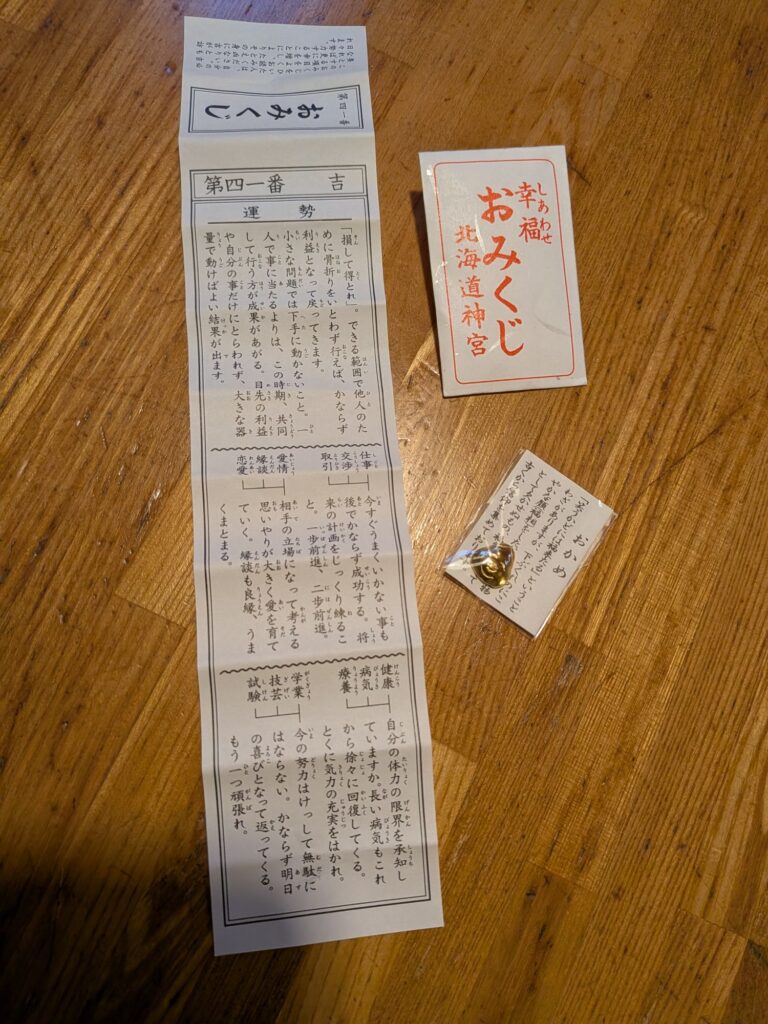 第四一番
おみくじ
第四一番 吉
運勢
「損して得とれ」。できる範囲で他人のた
めに骨折りをいとわず行えば、かならず
利益となって戻ってきます。
小さな問題では下手に動かないこと。一
人で事に当たるよりは、この時期、共同
して行う方が成果があがる。目先の利益
や自分の事だけにとらわれず、大きな器
量で動けばよい結果が出ます。
仕事
交渉
取引
今すぐうまくいかない事も
後でかならず成功する。将
来の計画をじっくり練るこ
と。一歩前進、二歩前進。
愛情
縁談
恋愛
相手の立場になって考える
思いやりが大きく愛を育て
ていく。縁談も良縁、うま
くまとまる。
健康
病気
療養
自分の体力の限界を承知し
ていますか。長い病気もこれ
から徐々に回復してくる。
とくに気力の充実をはかれ。
学業
技芸
試験
今の努力はけっして無駄に
はならない。かならず明日
の喜びとなって返ってくる。
もう一つ頑張れ。
しあわせ
幸福
おみくじ
北海道神宮
おかめ
「笑うかどには福来たる」ということ
わざがありますが、